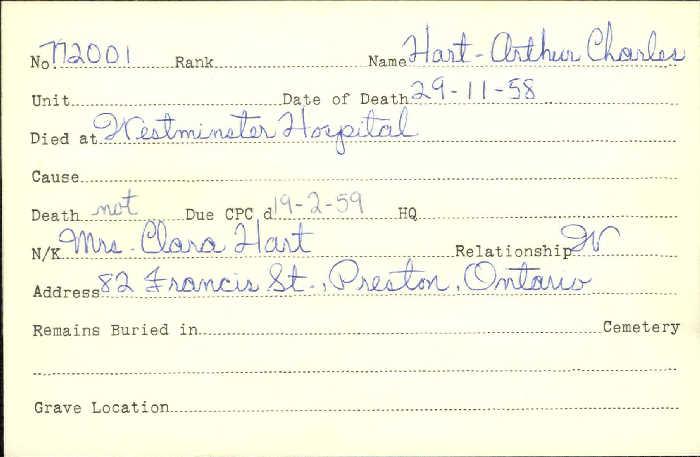 No 772001 Rank Name Hart - Arthur Charles
Unit Date of Death 29-11-58
Died at Westminster Hospital
Cause
Death not Due CPC d 19-2-59 HQ
N/K Mrs. Clara Hart Relationship W
Address 82 Francis St., Preston, Ontario
Remains Buried in Cemetery
Grave Location